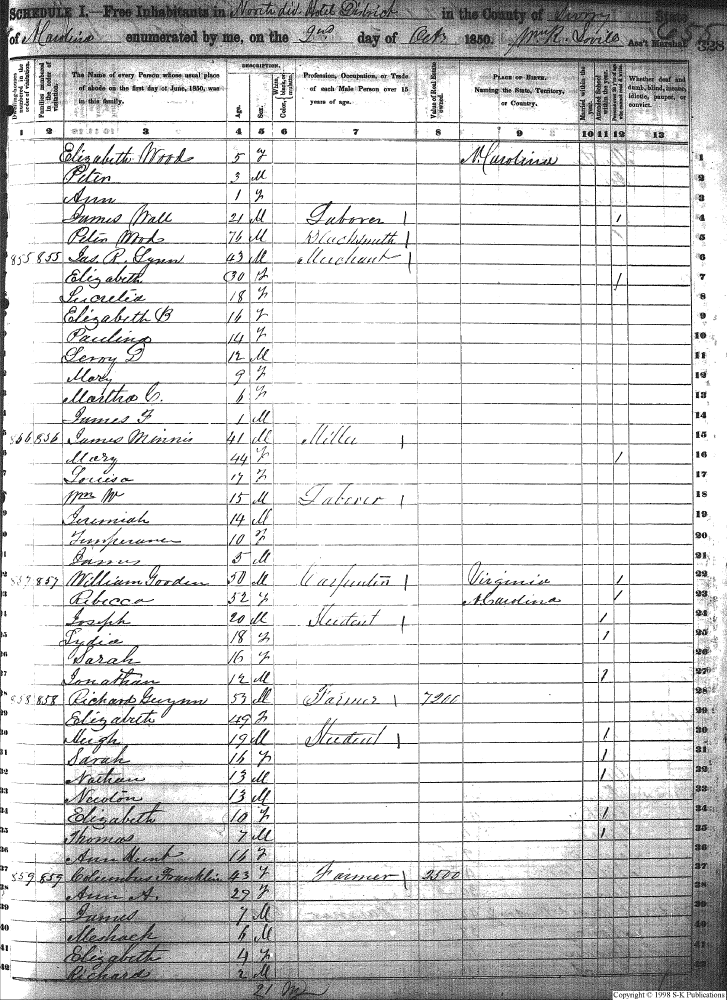 SCHEDULE I.—Free Inhabitants in North div Hotel District in the County of Surry State
of N Carolina enumerated by me, on the 2nd day of Oct 1850. Ass't Marshal. 328
DESCRIPTION.
Dwelling-houses numbered in the order of visitation.
Families numbered in the order of visitation.
The Name of every Person whose usual place of abode on the first day of June, 1850, was in this family.
Age.
Sex.
White, black, or mulatto. Color,
Profession, Occupation, or Trade of each Male Person over 15 years of age.
Value of Real Estate owned.
PLACE OF BIRTH. Naming the State, Territory, or Country.
Married within the year.
Attended School within the year.
Whether deaf and dumb, blind, insane, idiotic, pauper, or convict.
1 2 3 4 5 6 7 8 9 10 11 12 13
Elizabeth Woods 5 F N. Carolina 1
Peter 3 M 2
Ann 1 F 3
James Wall 21 M Laborer | 1 4
Peter Woods 76 M Blacksmith | 5
855 855 Jas. R. Lynn 43 M Merchant | 6
Elizabeth 30 F 1 7
Lucretia 18 F 8
Elizabeth B 16 F 9
Paulina 14 F 10
Leroy D 12 M 11
Mary 9 F 12
Martha C. 6 F 13
James F 1 M 14
856 856 James Minnis 41 M Miller | 15
Mary 44 F 1 16
Louisa 17 F 17
Wm W 15 M Laborer | 18
Jeremiah 14 M 19
Temperance 10 F 20
James 5 M 21
857 857 William Gooden 50 M Carpenter | Virginia 1 22
Rebecca 52 F N. Carolina 1 23
Joseph 20 M Student | 1 24
Lydia 18 F 1 25
Sarah 16 F 26
Jonathan 12 M 1 27
858 858 Richard Gwynn 53 M Farmer | 7200 28
Elizabeth 49 F 29
Hugh 19 M Student | 1 30
Sarah 16 F 1 31
Nathan 13 M 1 32
Newton 13 M 33
Elizabeth 10 F 1 34
Thomas 7 M 1 35
Ann Hunt 16 F 36
859 859 Columbus Franklin 43 F Farmer | 2500 37
Ann A. 29 F 38
James 7 M 39
Meshack 6 M 40
Elizabeth 4 F 41
Richard 2 M 42
21 M
Copyright © 1998 S-K Publications